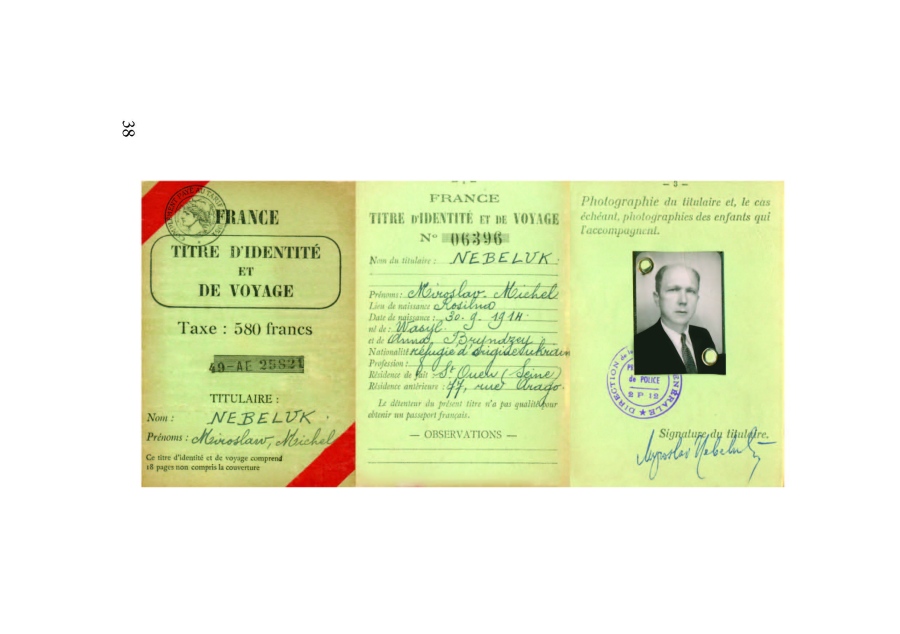 38
FRANCE
TITRE D'IDENTITÉ
ET
DE VOYAGE
Taxe : 580 francs
49-AE 25821
TITULAIRE :
Nom : NEBELUK
Prénoms : Miroslaw, Michel
Ce titre d'identité et de voyage comprend
18 pages non compris la couverture
FRANCE
TITRE D'IDENTITÉ ET DE VOYAGE
N° 06396
Nom du titulaire : NEBELUK
Prénoms : Miroslav Michel
Lieu de naissance Rosilna
Date de naissance : 30. 9. 1914
né de : Wasyl
et de Anna Bryndzey
Nationalité réfugié d'origine ukrain
Profession :
Résidence de fait : à St Ouen (Seine)
Résidence antérieure : 77, rue Arago.
Le détenteur du présent titre n'a pas qualité pour
obtenir un passeport français.
— OBSERVATIONS —
Photographie du titulaire et, le cas
échéant, photographies des enfants qui
l'accompagnent.
DIRECTION
de POLICE
Signature du titulaire.